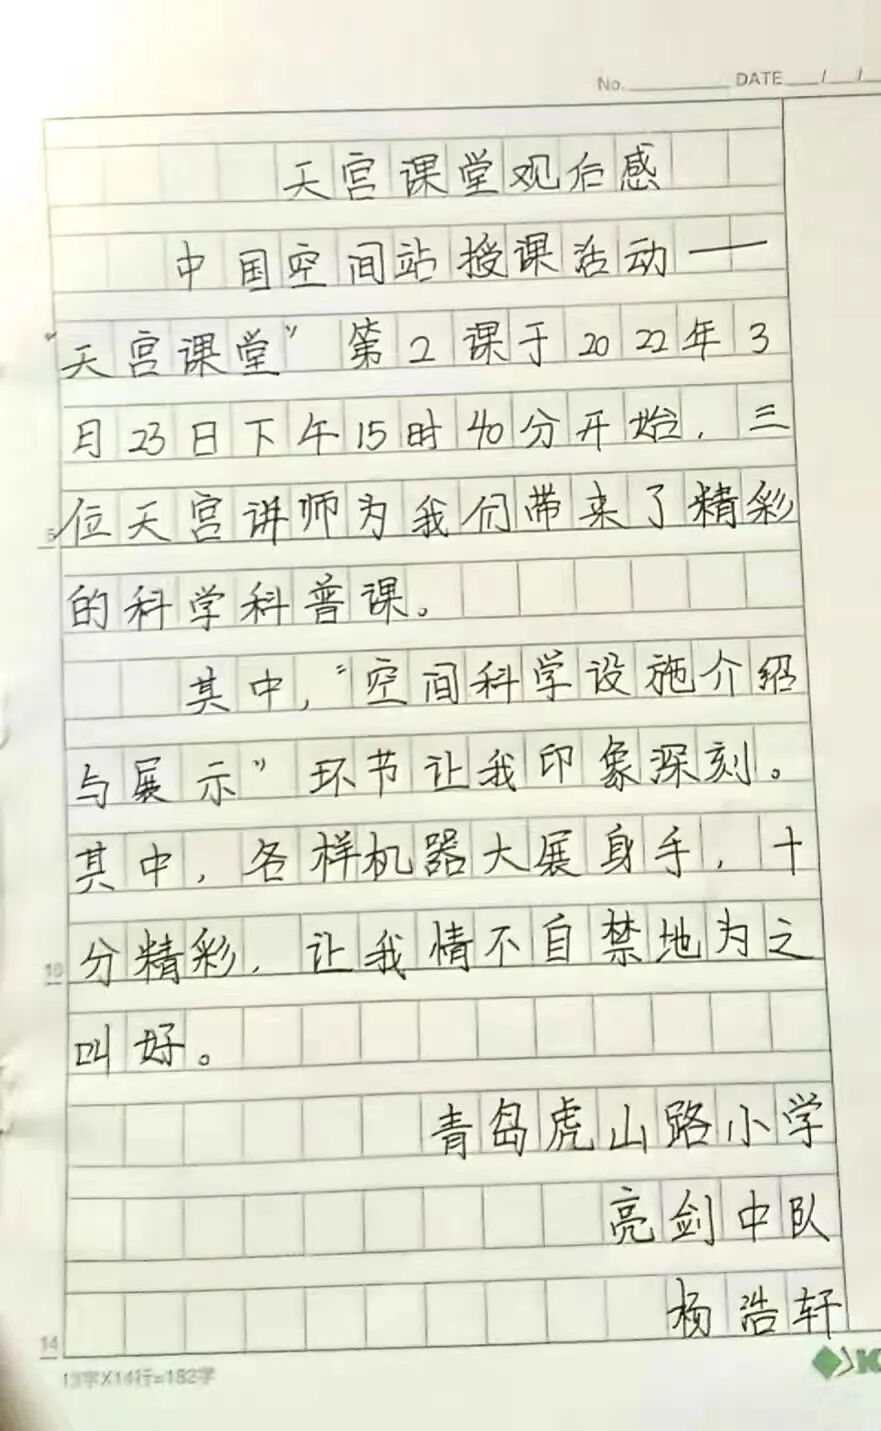 No. DATE / /
天宫课堂观后感
中国空间站授课活动——
“天宫课堂”第2课于2022年3
月23日下午15时40分开始，三
位天宫讲师为我们带来了精彩
5
的科学科普课。
其中，“空间科学设施介绍
与展示”环节让我印象深刻。
其中，各样机器大展身手，十
分精彩，让我情不自禁地为之
10
叫好。
青岛虎山路小学
亮剑中队
杨浩轩
14
13字X14行=182字